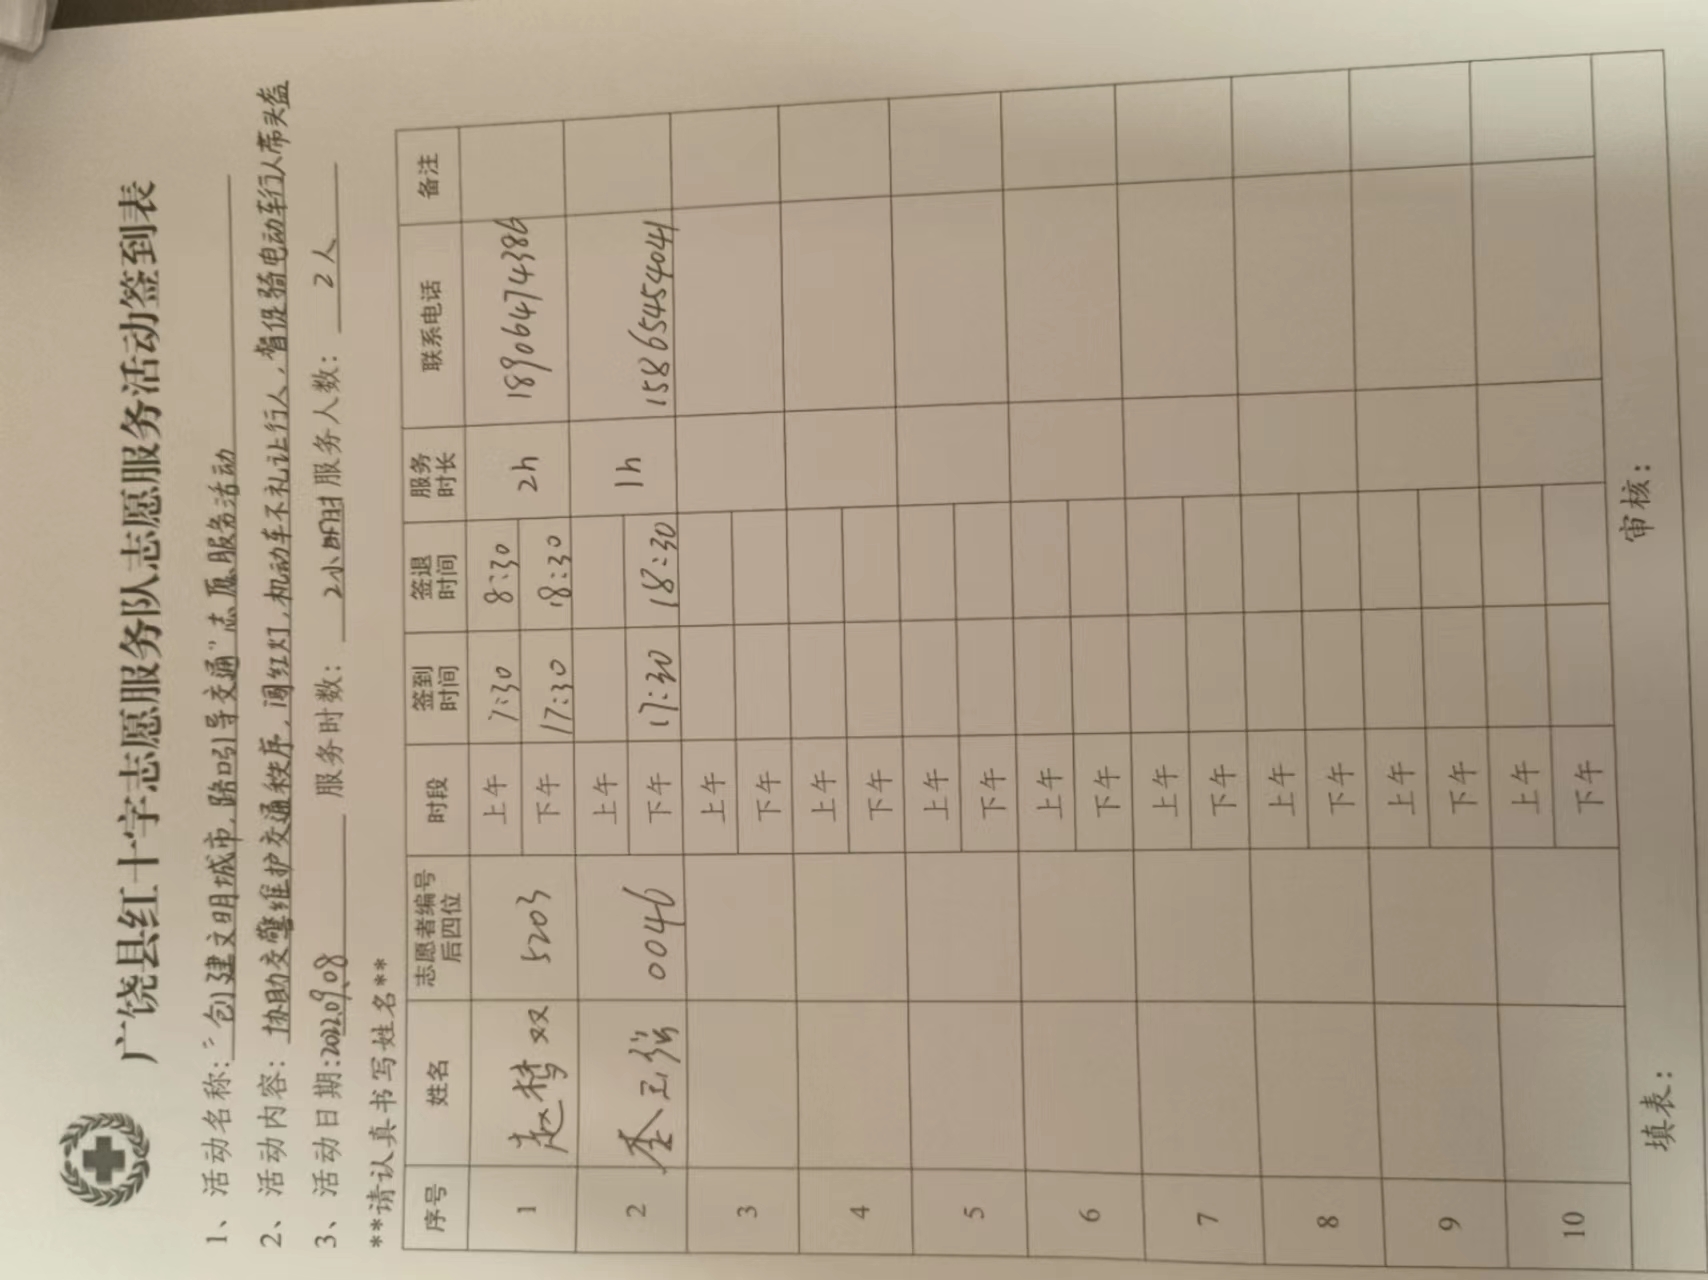 广饶县红十字志愿服务队志愿服务活动签到表
1、活动名称:“创建文明城市,路口引导交通”志愿服务活动
2、活动内容:协助交警维护交通秩序,闯红灯,机动车不礼让行人,督促骑电动车行人带头盔
3、活动日期:2022.09.08 服务时数:2小时 服务人数:2人
**请认真书写姓名**
序号 姓名 志愿者编号后四位 时段 签到时间 签退时间 服务时长 联系电话 备注
1 赵梦双 5203 上午 7:30 8:30 2h 18906474386
下午 17:30 18:30
2 0046 上午 1h 15865454041
下午 17:30 18:30
3 上午
下午
4 上午
下午
5 上午
下午
6 上午
下午
7 上午
下午
8 上午
下午
9 上午
下午
10 上午
下午
填表: 审核: